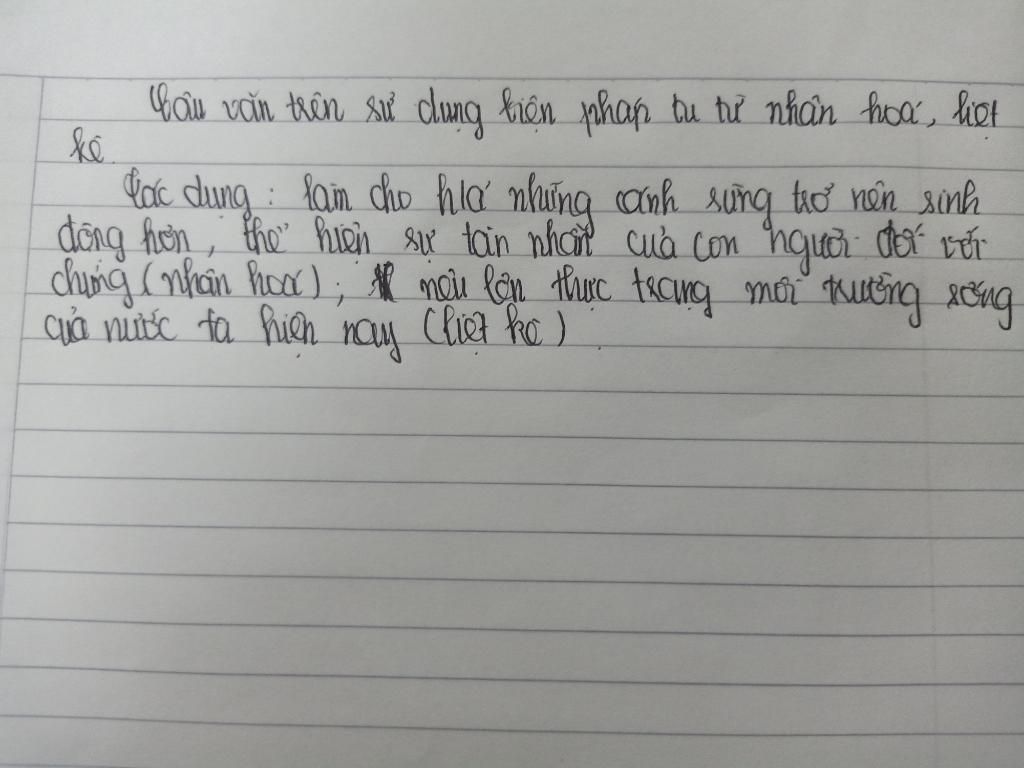 Câu văn trên sử dụng biện pháp tu từ nhân hoá, liệt
kê.
Tác dụng: làm cho những cánh rừng trở nên sinh
động hơn, thể hiện sự tàn nhẫn của con người đối với
chúng (nhân hoá); nêu lên thực trạng môi trường sống
của nước ta hiện nay (liệt kê).